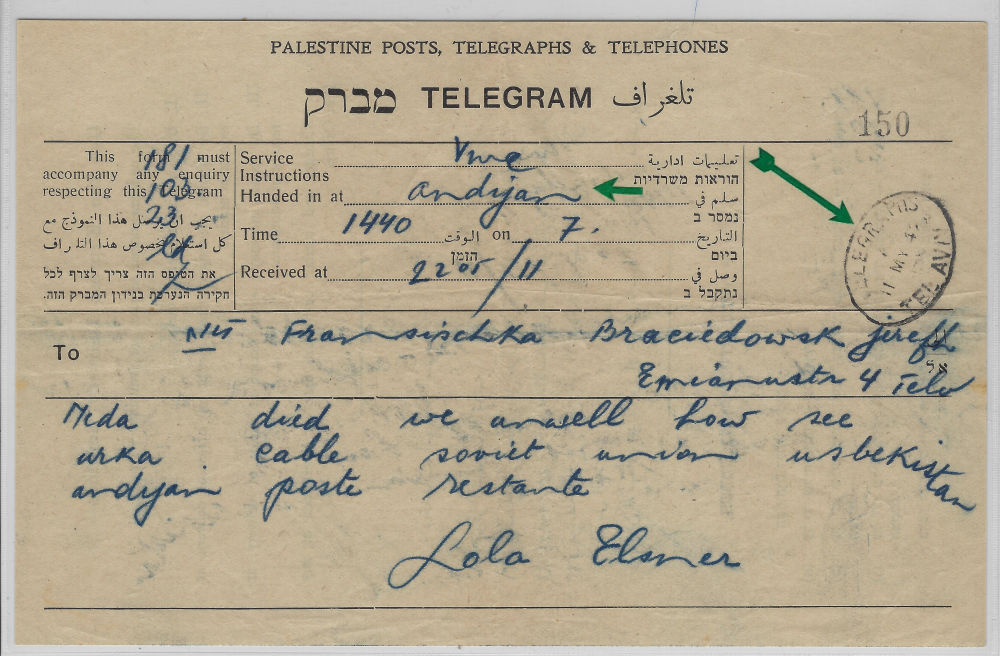 PALESTINE POSTS, TELEGRAPHS & TELEPHONES
מברק TELEGRAM تلغراف
150
This form must accompany any enquiry respecting this Telegram
يجب ان يوصل هذا النموذج مع
كل استعلام بخصوص هذا التلغراف
את הטופס הזה צריך לצרף לכל
חקירה הנערכת בנידון המברק הזה.
181
103
23
Service Instructions تعليمات ادارية
הוראות משרדיות
Handed in at andijan سلم في
נמסר ב
Time 1440 الوقت on 7. التاريخ
הזמן ביום
Received at 2205/11 وصل في
נתקבל ב
TELEGRAPHS
11 MY
TEL AVIV
To Fransischka Braciedowsk jirefh
אל
4 Telv
died we unwell how see
urka cable soviet union usbekistan
andijan poste restante
Lola Elsner